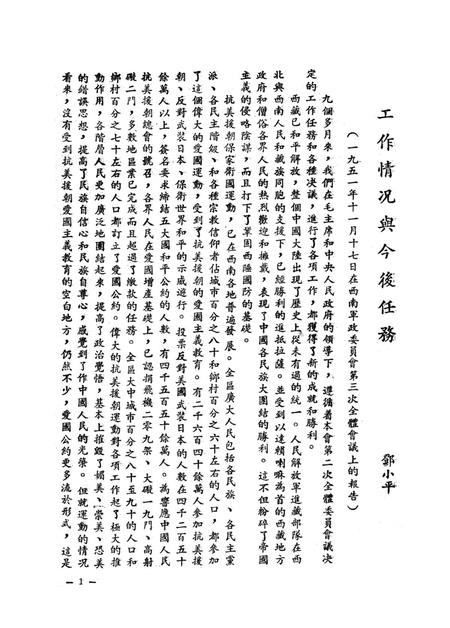 工作情況與今後任務
鄧小平
（一九五一年十一月十七日在西南軍政委員會第三次全體會議上的報告）
九個多月來，我們在毛主席和中央人民政府的領導下，遵循着本會第二次全體委員會議決
定的工作任務和各種決議，進行了各項工作，都獲得了新的成就和勝利。
西藏已和平解放，整個中國大陸出現了歷史上從未有過的統一。人民解放軍進藏部隊在西
北與西南人民和藏族同胞的支援下，已經勝利的進抵拉薩。並受到以達賴喇嘛為首的西藏地方
政府和僧俗各界人民的熱烈歡迎和擁戴，表現了中國各民族大團結的勝利。這不但粉碎了帝國
主義的侵略陰謀，而且打下了鞏固西陲國防的基礎。
抗美援朝保家衛國運動，已在西南各地普遍發展。全區廣大人民包括各民族、各民主黨
派、各民主階級、和各種宗教信仰者佔城市百分之八十和鄉村百分之六十左右的人口，都參加
了這個偉大的愛國運動，受到了抗美援朝的愛國主義教育。有二千六百四十餘萬人參加抗美援
朝、反對武裝日本、保衛世界和平的示威遊行。投票反對美國武裝日本的人數在四千二百五十
餘萬人以上，簽名要求締結五大國和平公約的人數，有四千五百五十餘萬人。為響應中國人民
抗美援朝總會的號召，各界人民在愛國增產基礎上，已認捐飛機二零九架、大礮一九門、高射
礮二門，多數地區業已完成而且超過了繳款的任務。全區大中城市百分之八十至九十的人口和
鄉村百分之七十左右的人口都訂立了愛國公約。偉大的抗美援朝運動對各項工作起了極大的推
動作用，各階層人民更加廣泛地團結起來，提高了政治覺悟，基本上摧毀了媚美、崇美、恐美
的錯誤思想，提高了民族自信心和民族自尊心，感覺到了作中國人民的光榮。但就運動的情況
看來，沒有受到抗美援朝愛國主義教育的空白地方，仍然不少，愛國公約更多流於形式，這是
— 1 —